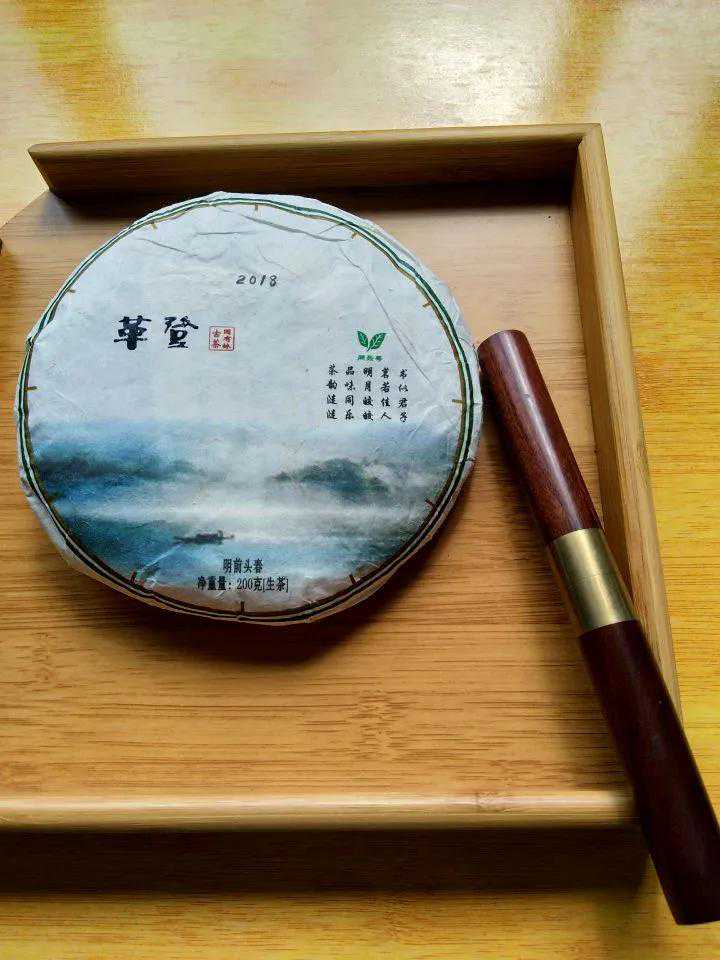 2018
革登
国有林
古茶
书似君子
茗若佳人
明月皎皎
品味同乐
茶韵涟涟
明前头春
净重量：200克[生茶]